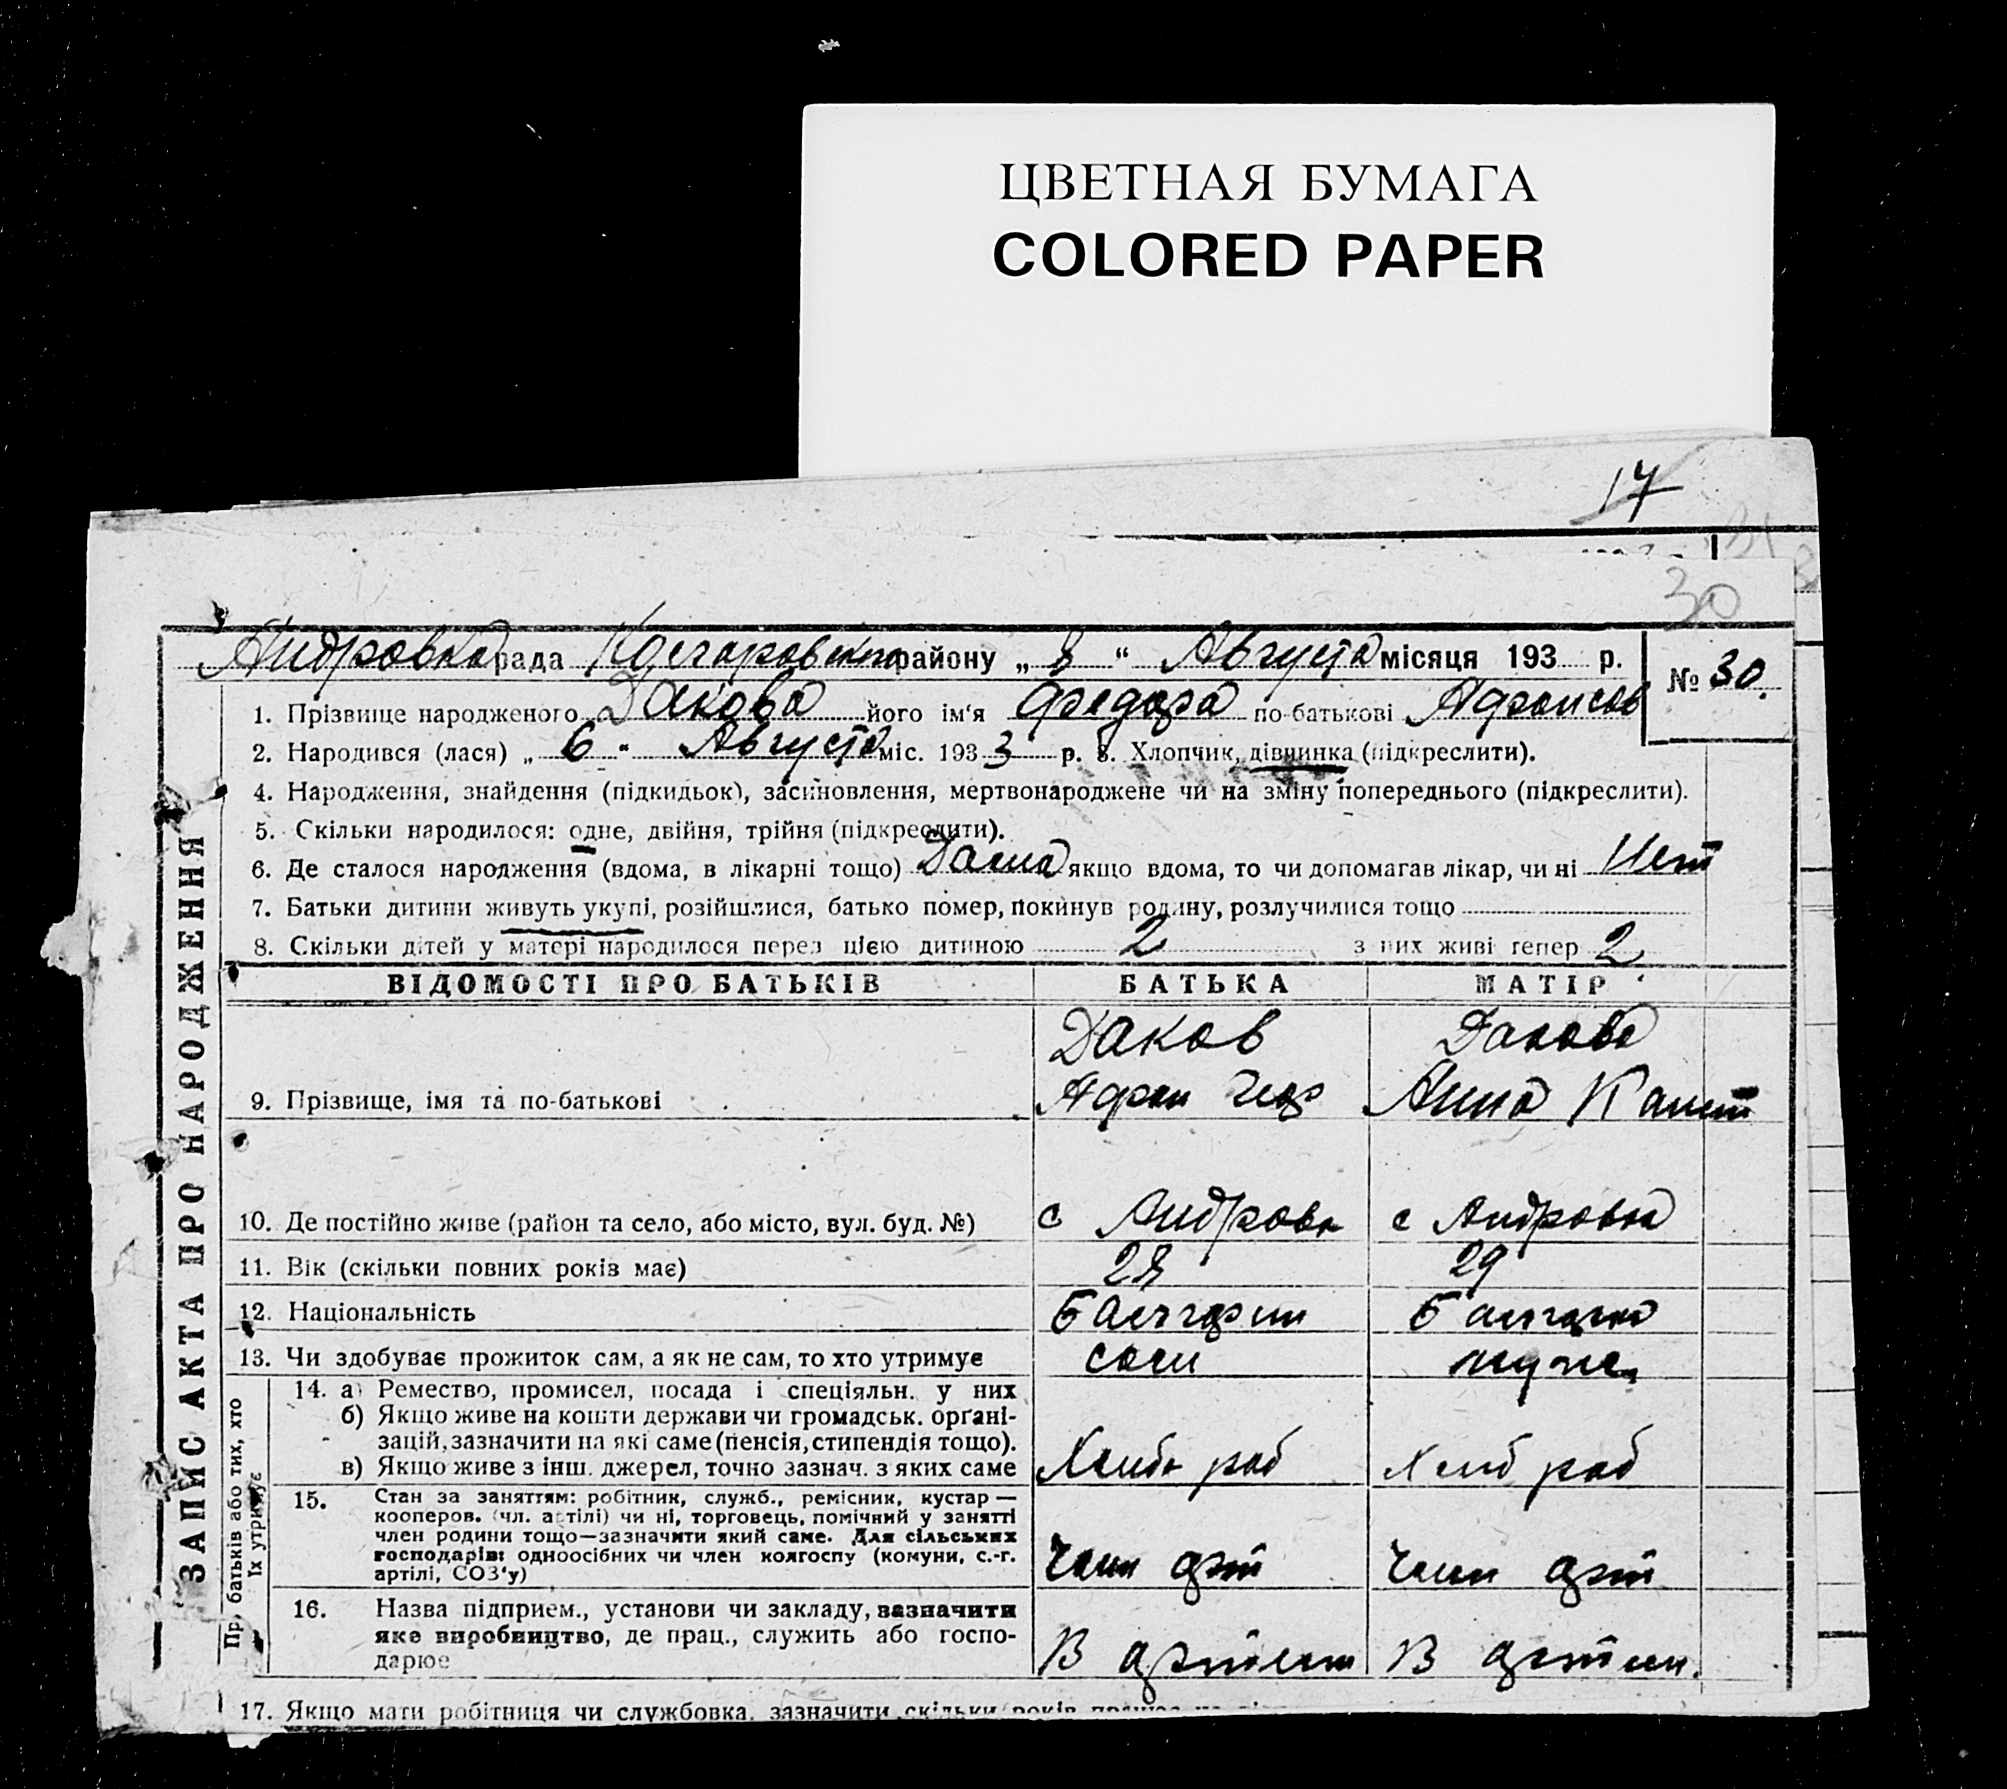 ЦВЕТНАЯ БУМАГА
COLORED PAPER
17
30
Андровка рада районну „ 8 “ Августа місяця 193 р.
№ 30.
1. Прізвище народженого Дакова його ім'я Федора по-батькові
2. Народився (лася) „ 6 “ Августа міс. 1933 р. 3. Хлопчик, дівчинка (підкреслити).
4. Народження, знайдення (підкидьок), засиновлення, мертвонароджене чи на зміну попереднього (підкреслити).
5. Скільки народилося: одне, двійня, трійня (підкреслити).
6. Де сталося народження (вдома, в лікарні тощо) Дома якщо вдома, то чи допомагав лікар, чи ні Нет
7. Батьки дитини живуть укупі, розійшлися, батько помер, покинув родину, розлучилися тощо
8. Скільки дітей у матері народилося перед цією дитиною 2 з них живі тепер 2
ВІДОМОСТІ ПРО БАТЬКІВ БАТЬКА МАТІР
Даков Дакова
9. Прізвище, імя та по-батькові Афан Анна
10. Де постійно живе (район та село, або місто, вул. буд. №) с Андровк с Андровка
11. Вік (скільки повних років має) 28 29
12. Національність Балгарин Балгарка
13. Чи здобуває прожиток сам, а як не сам, то хто утримує сам муж
14. а) Ремество, промисел, посада і спеціяльн. у них
б) Якщо живе на кошти держави чи громадськ. органі-
зацій, зазначити на які саме (пенсія, стипендія тощо).
в) Якщо живе з інш. джерел, точно зазнач. з яких саме Хлиб роб Хлиб роб
15. Стан за заняттям: робітник, служб., ремісник, кустар —
кооперов. (чл. артілі) чи ні, торговець, помічний у занятті
член родини тощо—зазначити який саме. Для сільських
господарів: одноосібних чи член колгоспу (комуни, с.-г.
артілі, СОЗ'у) член арт член арт
16. Назва підприєм., установи чи закладу, зазначити
яке виробництво, де прац., служить або госпо-
дарює В артели В артели
17. Якщо мати робітниця чи службовка, зазначити скільки років
ЗАПИС АКТА ПРО НАРОДЖЕННЯ
Пр. батьків або тих, хто
їх утримує